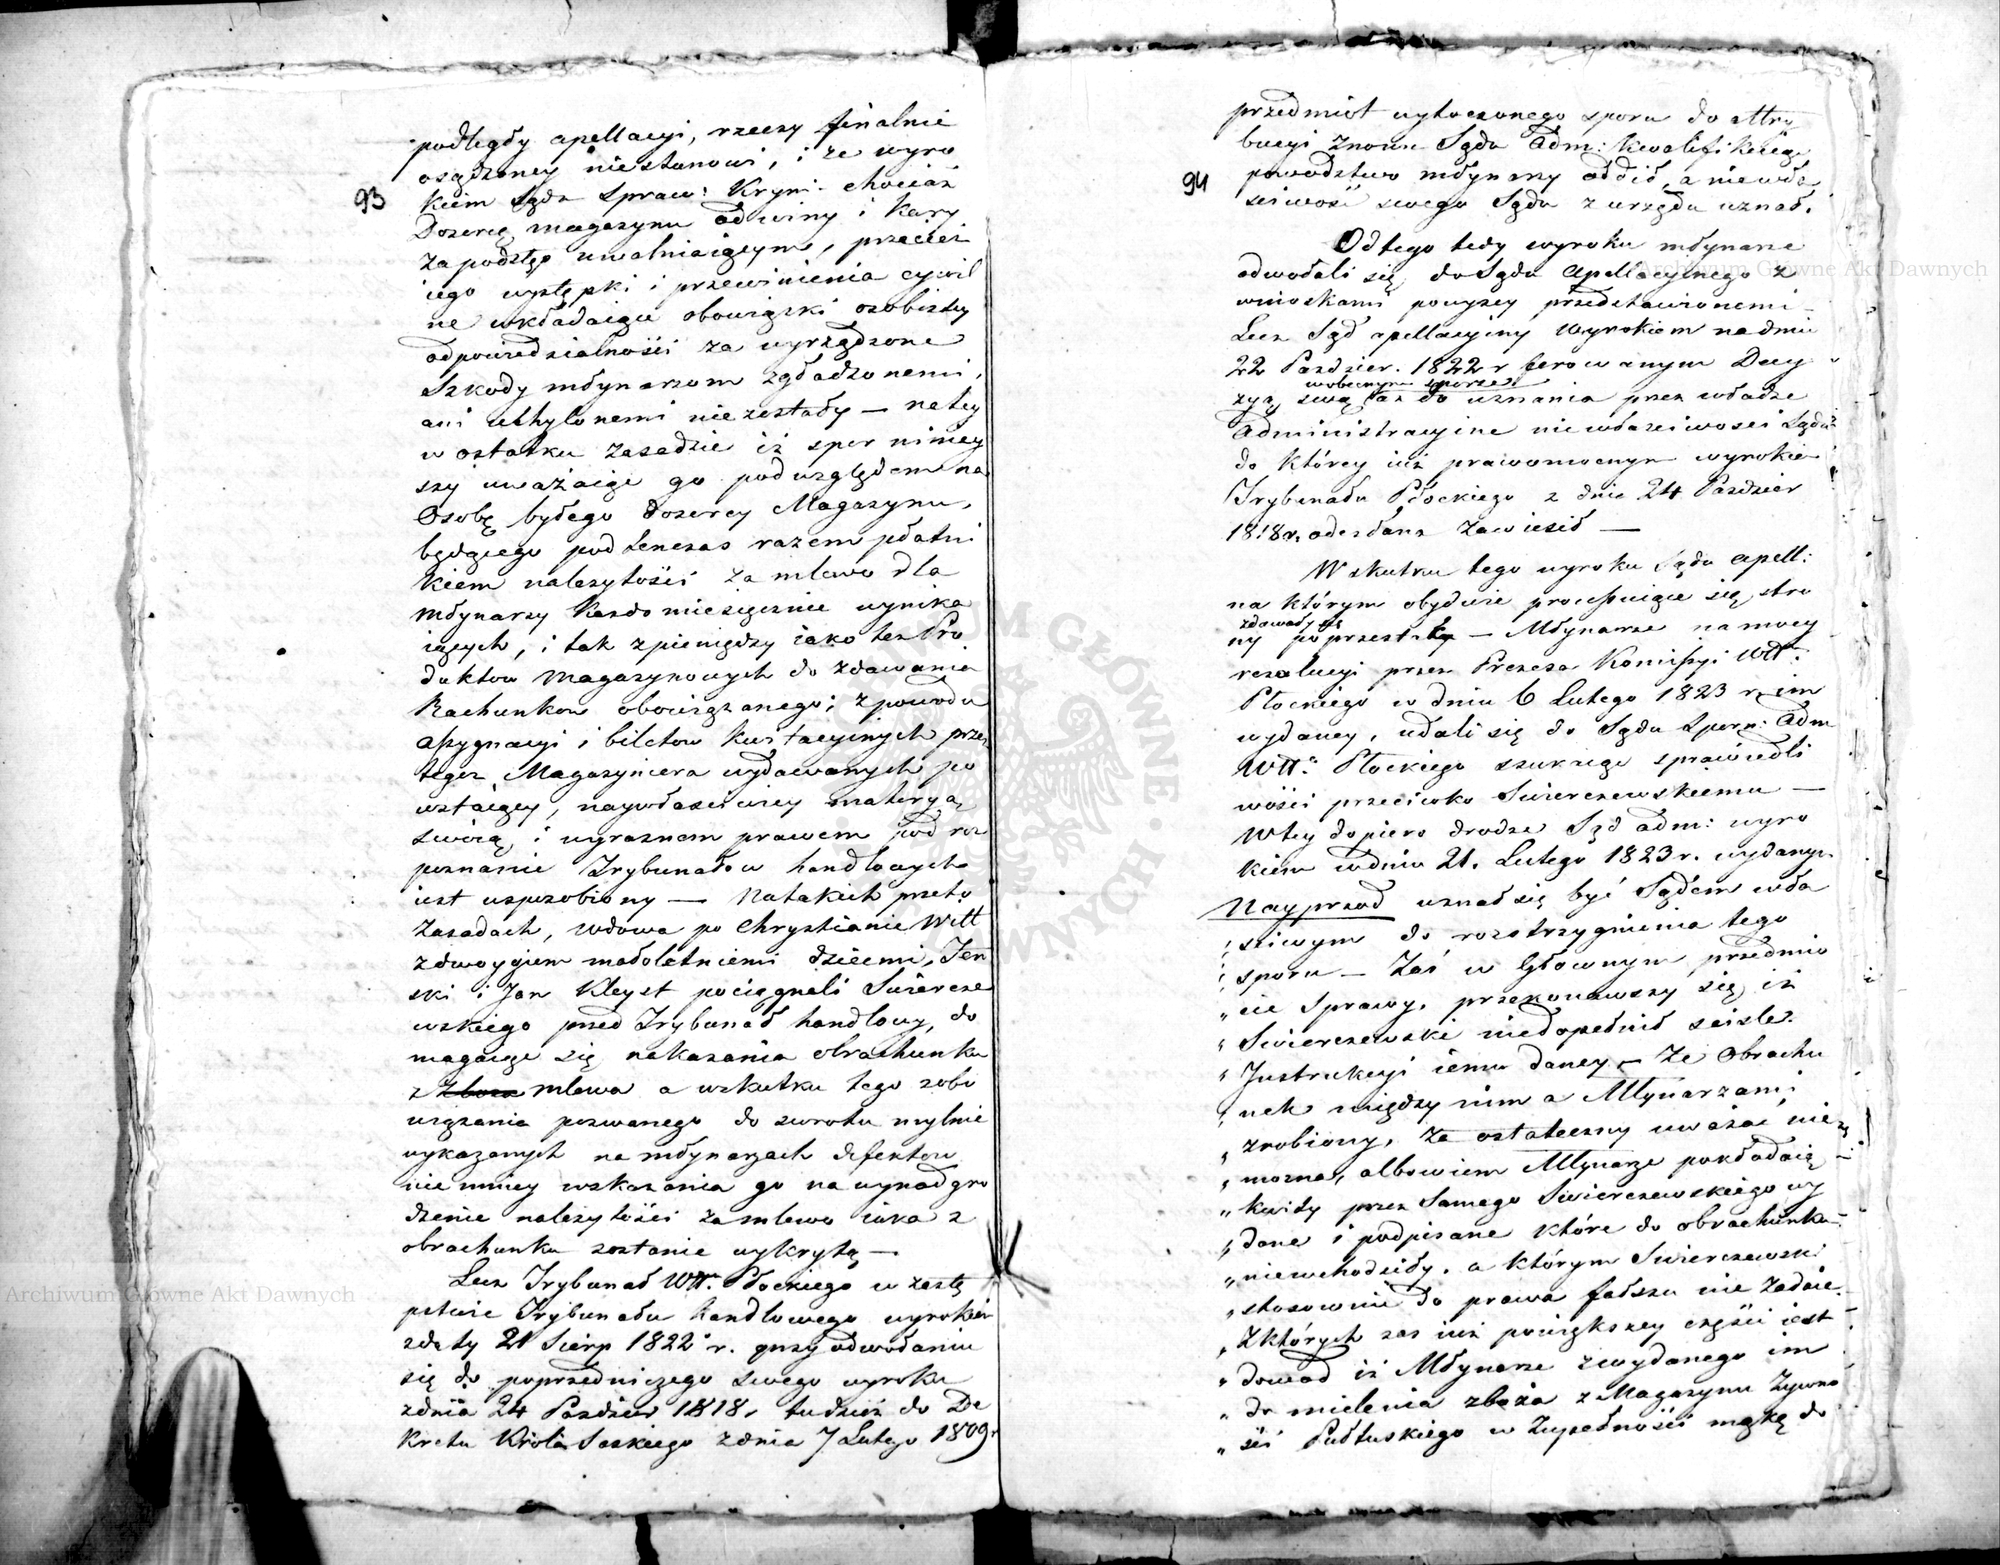 93
podległy apellacyi, rzeczy finalnie
osądzoney niestanowi, i że wyro
kiem Sądu Spraw: Krym: chociaż
Dozorcę magazynu od winy i kary
za podstęp uwalniaiącym, przecież
iego występki i przewinienia cywil
ne wkładaiące obowiązki osobistey
odpowiedzialności za wyrządzone
Szkody młynarzom zgładzonemi,
ani uchylonemi niezostały — na tey
w ostatku zasadzie iż spor niniey
szy uważaiąc go pod względem na
Osobę byłego Dozorcy Magazynu,
będącego podtenczas razem płatni
kiem należytości za mlewo dla
młynarzy każdomiesięcznie wynika
iących, i tak z pieniędzy iako też Pro
duktow magazynowych do zdawania
Rachunkow obowiązanego; z powodu
assygnacyi i biletow kwitacyinych przez
tegoż Magazyniera wydawanych po
wstaiący, naywłaściwiey materyą
swoią i wyraznem prawem pod roz
poznanie Trybunałow handlowych
iest usposobiony — Na takich przeto
Zasadach, wdowa po Chrystianie Witt
z dwoygiem małoletniemi dziećmi, Zen
ski i Jan Kleyst pociągneli Swiercze
wskiego przed Trybunał handlowy, do
magaiąc się nakazania obrachunku
z mlewa a w skutku tego zobo
wiązania pozwanego do zwrotu mylnie
wykazanych na młynarzach defektow
nie mniey wskazania go na wynadgro
dzenie należytości za mlewo iaka z
obrachunku zostanie wykrytą —
Lecz Trybunał Wtt. Płockiego w zastę
pstwie Trybunału handlowego wyrokiem
z daty 21 Sierp 1822 r. przy odwołaniu
się do poprzedniczego swego wyroku
z dnia 24 Pazdzier 1818, tudzież do De
kretu Króla Saskiego z dnia 7 Lutego 1809 r
94
przedmiot wytoczonego sporu do attry
bucyi znowu Sądu Adm: kwalifikuiąc
powodztwo młynarzy oddalił, a niewła
sciwość swego Sądu z urzędu uznał.
Od tego tedy wyroku młynarze
odwołali się do Sądu Apellacyinego z
wnioskami powyzey przedstawionemi
Lecz Sąd apellacyiny wyrokiem na dniu
22 Pazdzier. 1822 r ferowanym Decy
w obecnym sporze
zyą swą aż do uznania przez władze
Administracyine niewłasciwosci Sądu
do którey iuż prawomocnym wyrokiem
Trybunału Płockiego z dnia 24 Pazdzier
1818 r. odesłana zawiesił —
W skutku tego wyroku Sądu apell:
na którym obydwie processuiące się stro
ny poprzest — Młynarze na mocy
rezolucyi przez Prezesa Komissyi Wtt:
Płockiego w dniu 6 Lutego 1823 r. im
wydaney, udali się do Sądu Sporn: Adm
Wtt: Płockiego szukaiąc sprawiedli
wości przeciwko Swierczewskiemu —
W tey dopiero drodze Sąd adm: wyro
kiem w dniu 21. Lutego 1823 r. wydanym
Nayprzod uznał się być Sądem wła
sciwym do rozstrzygnienia tego
sporu — Zaś w Głownym przedmio
„ cie Sprawy, przekonawszy się iż
„ Swierczewski niedopełnił sciśle
„ Instrukcyi iemu daney — Że Obrachu
„ nek między nim a Młynarzami
„ zrobiony, za ostateczny uważać nie
„ można, albowiem Młynarze pokładaią
„ kwity przez Samego Swierczewskiego wy
„ dane i podpisane które do obrachunku
„ niewchodziły, a którym Swierczewski
„ stosownie do prawa fałszu nie zadaie.
„ Z których zaś iuż powiększey części iest
„ dowod iż Młynarze z wydanego im
„ do mielenia zboża z Magazynu Żywno
„ ści Pułtuskiego w Zupełności mąkę do
Archiwum Główne Akt Dawnych
Archiwum Główne Akt Dawnych